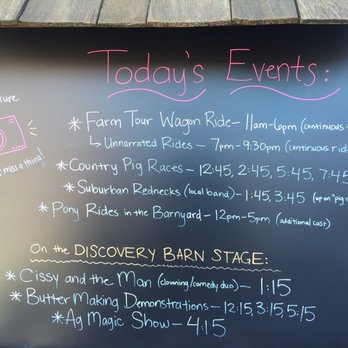 Today's Events:
* Farm Tour Wagon Ride - 11am-6pm (continuous
↳ Unnarrated Rides - 7pm-9:30pm (continuous rid
* Country Pig Races - 12:45, 2:45, 5:45, 7:45
* Suburban Rednecks (local band) - 1:45, 3:45 (up on "pig
* Pony Rides in the Barnyard - 12pm-5pm (additional cost)
On the DISCOVERY BARN STAGE:
* Cissy and the Man (clowning/comedy duo) - 1:15
* Butter Making Demonstrations - 12:15, 3:15, 5:15
* Ag Magic Show - 4:15
a thing!